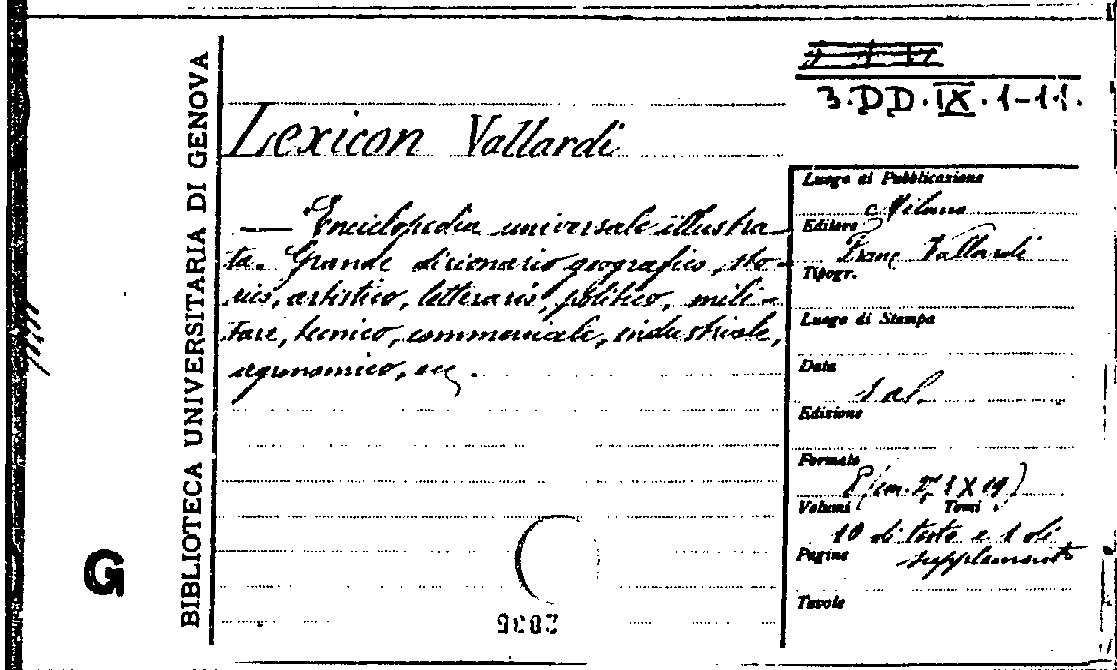 BIBLIOTECA UNIVERSITARIA DI GENOVA
G
3.DD.IX.1-11.
Lexicon Vallardi
— Enciclopedia universale illustra-
ta. Grande dizionario geografico, sto-
rico, artistico, letterario, politico, mili-
tare, tecnico, commerciale, industriale,
agronomico, ecc.
Luogo di Pubblicazione
Milano
Editore
Franc Vallardi
Tipogr.
Luogo di Stampa
Data
s. a.
Edizione
Formato
8 (cm. 27,5 X 19)
Volumi Tomi
10 di testo e 1 di
Pagine supplemento
Tavole